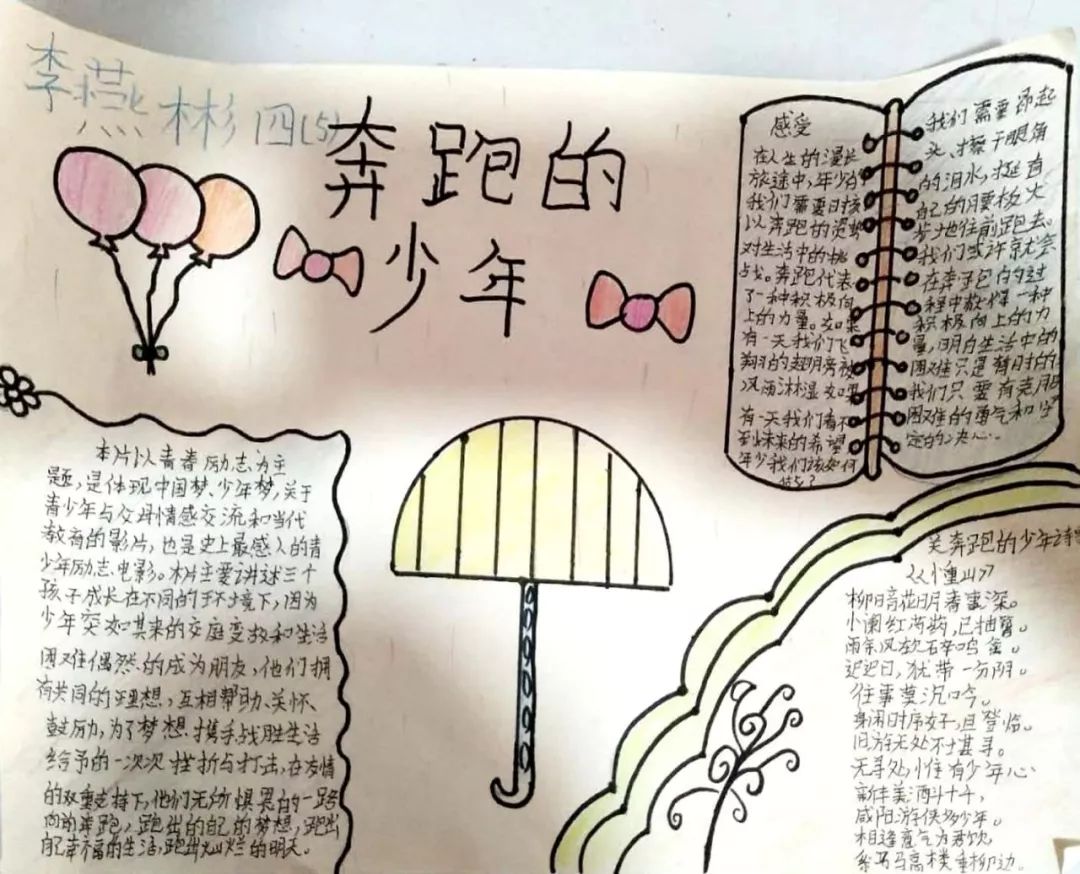 李燕彬 四(5)
奔跑的
少年
感受
在人生的漫长
旅途中,年少的
我们需要日核
以奔跑的姿
对生活中的挑
战。奔跑代表
了一种积极向
上的力量。如果
有一天我们飞
翔的翅膀旁被
风雨淋湿如果
有一天我们看不
到未来的希望
年少我们该如何
我们需要昂起
头、擦干眼角
的泪水,挺直
自己的腰板大
步地往前跑去。
我们或许就会
在奔跑的过
程中放 一种
积极向上的力
量,明白生活中的
困难只是暂时的
我们只要有克服
困难的勇气和
定的决心。
本片以青春励志为主
题,是体现中国梦、少年梦,关于
青少年与父母情感交流和当代
教育的影片,也是史上最感人的青
少年励志电影。本片主要讲述三个
孩子成长在不同的环境下,因为
少年突如其来的家庭变故和生活
困难偶然的成为朋友,他们拥
有共同的理想,互相帮助、关怀、
鼓励,为了梦想携手战胜生活
给予的一次次挫折与打击,在友情
的双重支持下,他们无所惧畏的一路
向前奔跑,跑出的自己的梦想,跑出
自己幸福的生活,跑出灿烂的明天。
关奔跑的少年诗
《小重山》
柳暗花明春事深。
小阑红芍药,已抽簪。
雨余风软碎鸣禽。
迟迟日,犹带一分阴。
往事莫沉吟。
身闲时序好,且登临。
旧游无处不堪寻。
无寻处,惟有少年心。
新丰美酒斗十千,
咸阳游侠多少年。
相逢意气为君饮
系马高楼垂柳边。